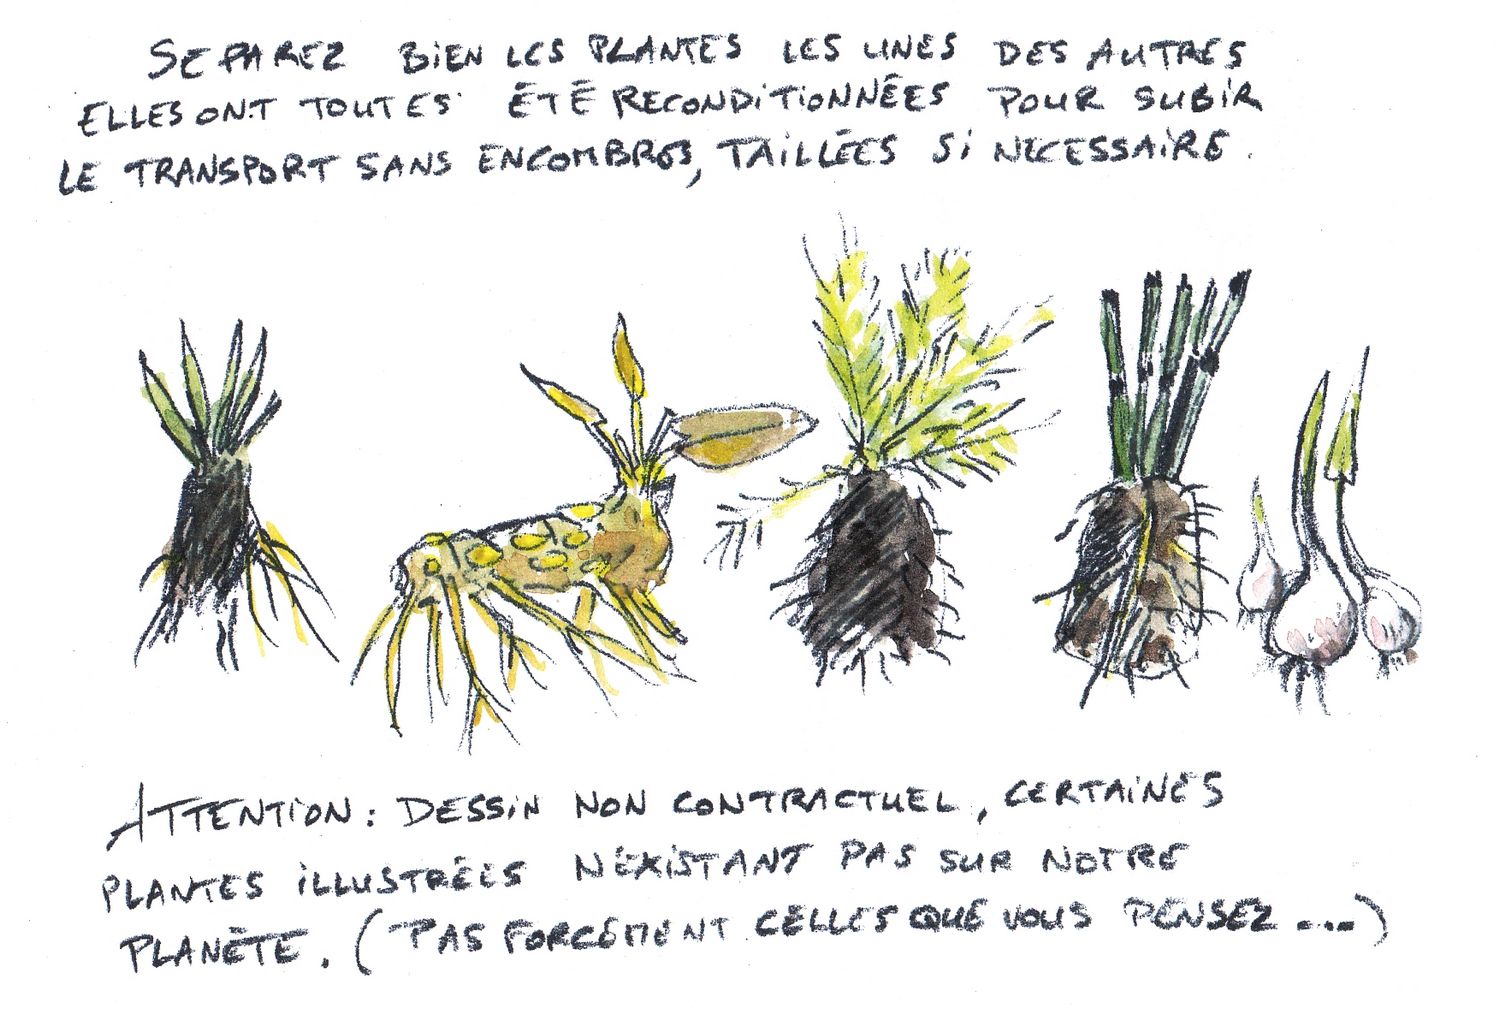 SEPAREZ BIEN LES PLANTES LES UNES DES AUTRES
ELLES ONT TOUTES ÉTÉ RECONDITIONNÉES POUR SUBIR
LE TRANSPORT SANS ENCOMBRES, TAILLÉES SI NECESSAIRE.
ATTENTION : DESSIN NON CONTRACTUEL, CERTAINES
PLANTES ILLUSTRÉES N'EXISTANT PAS SUR NOTRE
PLANÈTE. (PAS FORCEMENT CELLES QUE VOUS PENSEZ ....)